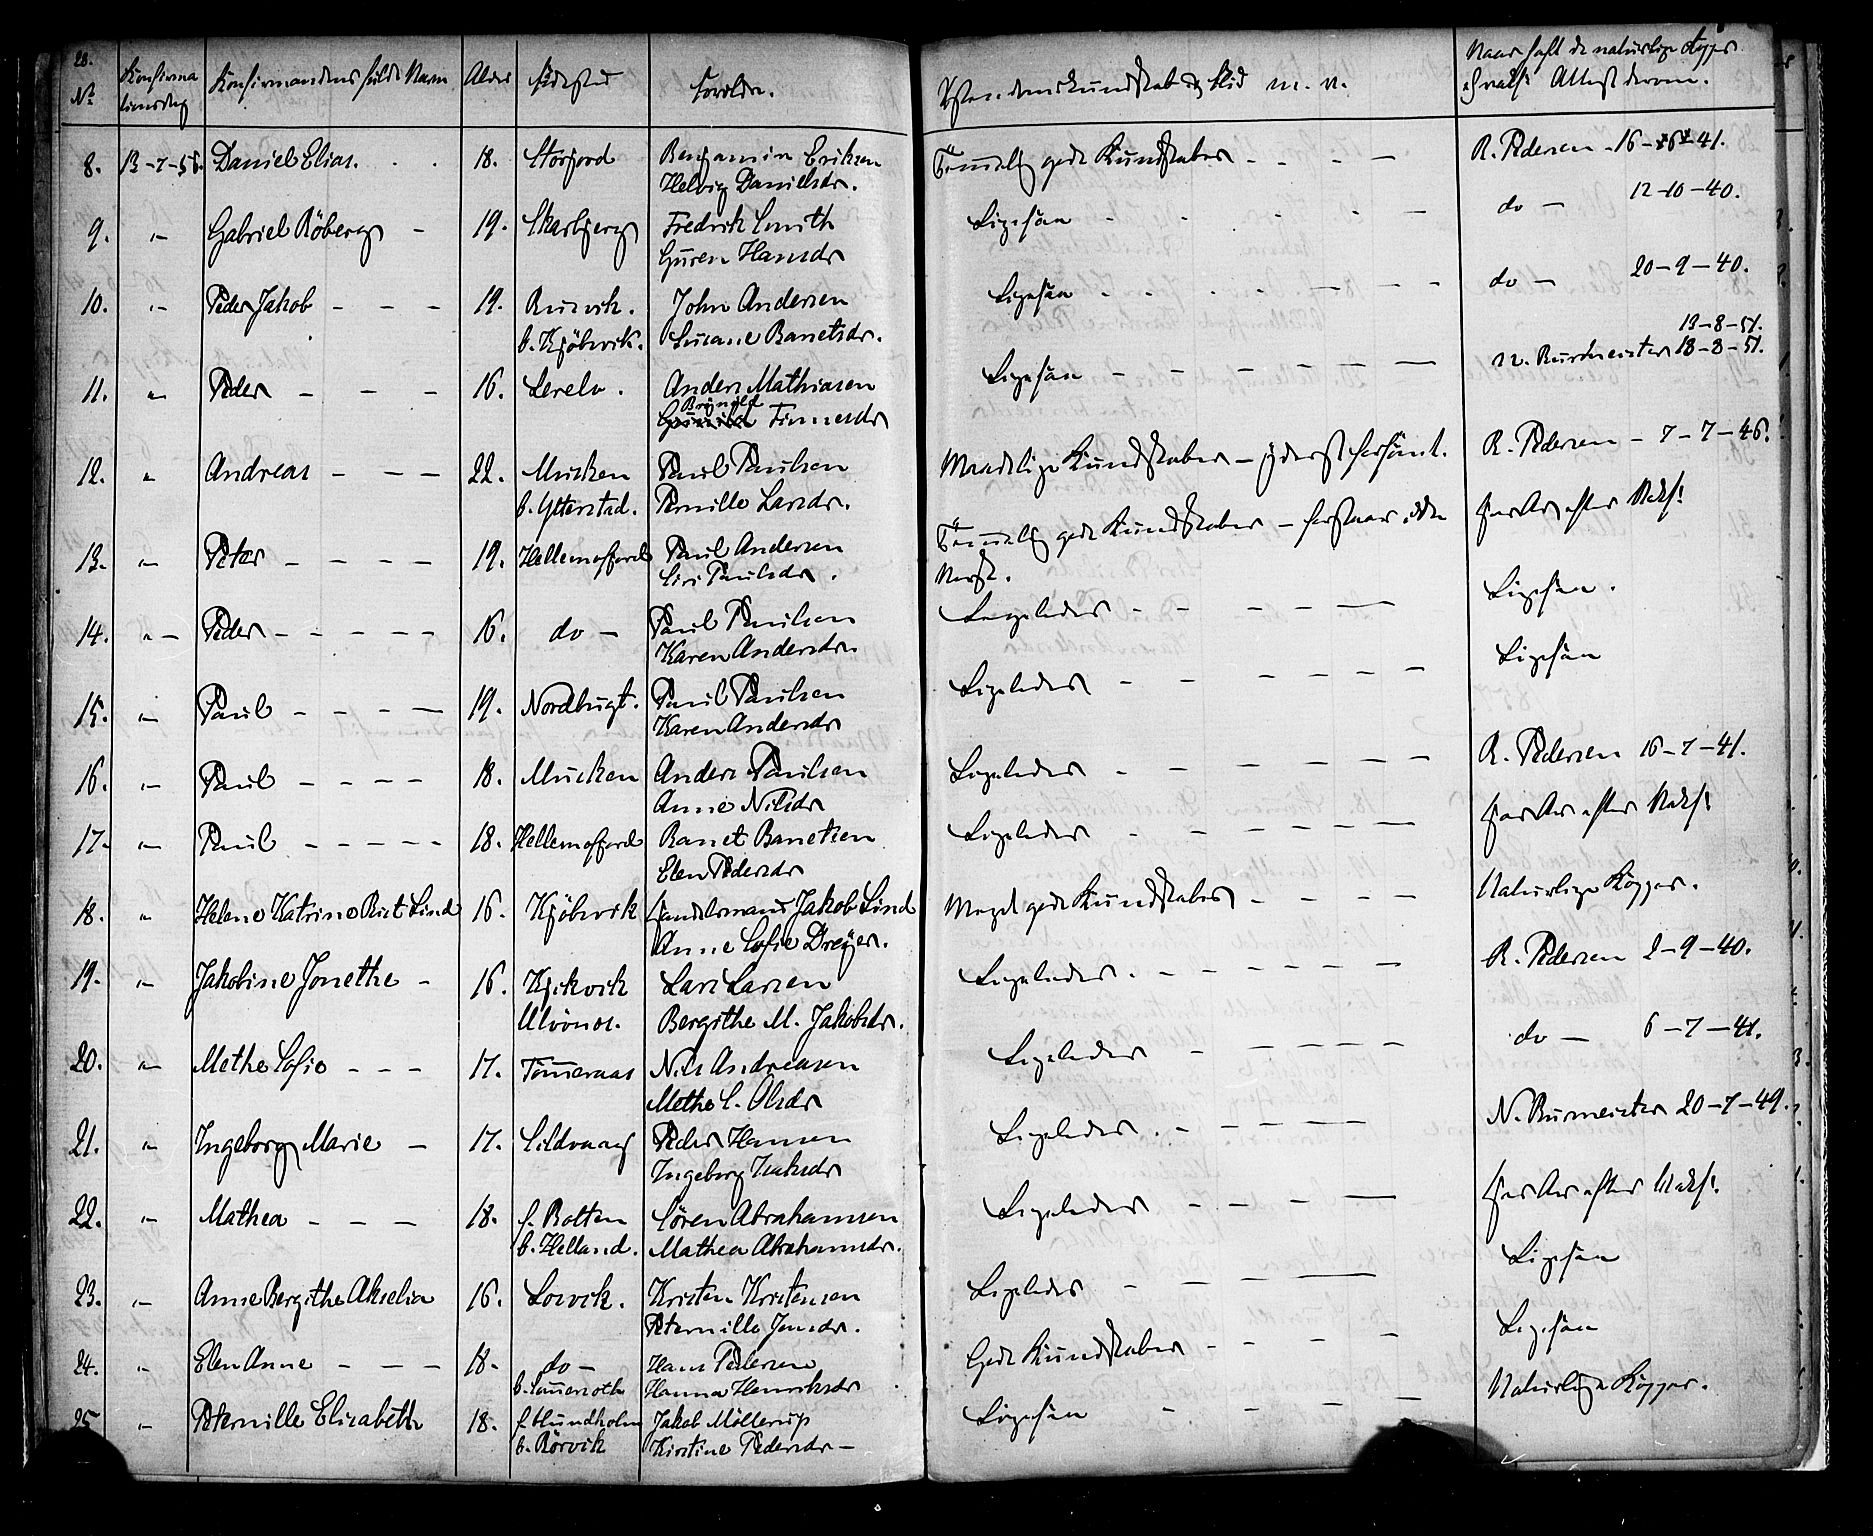 28.
No Konfirmationsdag Konfirmandens fulde Navn Alder Fødested Forældre. Kristendomskundskab og Flid m. v. Naar haft de naturlige Kopper og hvis Attest derom.
8. 13-7-56. Daniel Elias. 18. Storfjord Benjamin Eriksen Temmelig gode Kundskaber - - - - R. Pedersen - 16-6-41.
Helvig Danielsdr.
9. " Gabriel Röberg - 19. Skarbjerg Fredrik Smith Ligesaa - - - - do - 12-10-40.
Guren Hansdr
10. " Peder Jakob - - - 19. Rusvik. John Andersen Ligesaa - - - - do - 20-9-40.
b. Kjöbvik. Susane Banetsdr.
13-8-51.
11. " Peder - - - 16. Lerelv. Anders Mathiasen Ligesaa - - - - N. Burmeister 18-8-51.
Brynild
Gunild Finnesdr
12. " Andreas - - - 22. Musken Paul Paulsen Maadelige Kundskaber - yderst forsömt. R. Pedersen - 7-7-46.
b. Ytterstad. Pernille Larsdr.
13. " Peter - - - - 19. Hellemofjord Paul Andersen Temmelig gode Kundskaber - forstaar ikke Har Ar efter Vakse
Siri Paulsdr. Norsk.
14. " Peder - - - - - 16. do - Paul Paulsen Ligeledes - - - - Ligesaa.
Karen Andersdr
15. " Paul - - - - 19. Nordbugt. Paul Paulsen Ligeledes - - - - - Ligesaa
Karen Andersdr
16. " Paul - - - - 18. Musken Anders Paulsen Ligeledes - - - - - - R. Pedersen 16-7-41.
Anne Nilsdr
17. " Paul - - - - - 18. Hellemofjord Banet Banetsen Ligeledes - - - - - - Har Ar efter Vakse
Elen Pedersdr
18. " Helene Katrine Riet Lind 16. Kjöbvik Handelsmand Jakob Lind Meget gode Kundskaber - - - - Naturlige Kopper.
Anne Sofie Dreÿer.
19. " Jakobine Jonethe - 16. Kjekvik Lars Larsen Ligeledes. - - - - - - R. Pedersen 2-9-40.
Ulvönes. Bergithe M. Jakobsdr.
20. " Methe Sofie - - - 17. Tömeraas Nils Andreasen Ligeledes - - - - - do - 6-7-41.
Methe S. Olsdr
21. " Ingeborg Marie - 17. Sildvaag Peder Hansen Ligeledes. - - - - N. Burmeister 20-7-49.
Ingeborg Isaksdr
22. " Mathea - - - 18. f. Botten Sören Abrahamsen Ligeledes - - - - Har Ar efter Vakse
b. Helland. Mathea Abrahamsdr.
23. " Anne Bergithe Akselia 16. Losvik. Kristen Kristensen Ligeledes - - - - Ligesaa
Peternille Jensdr.
24. " Elen Anne - - - 18. do - Hans Pedersen Gode Kundskaber - - - - Ligesaa
Hanna Henriksdr
25 " Peternille Elisabeth 18. f. Hundholm Jakob Möllerup Ligesaa - - - - Naturlige Kopper.
b. Rörvik Kirstine Pedersdr -